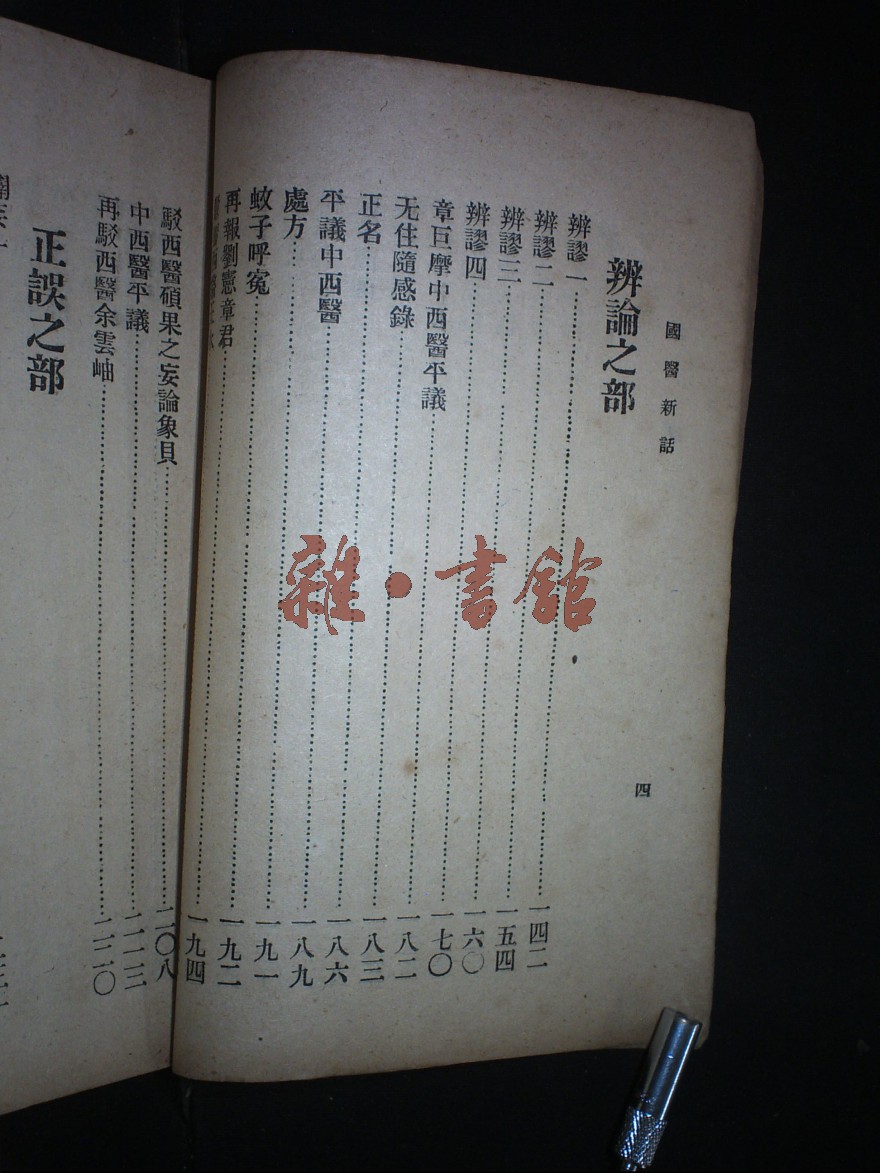 國醫新話
四
辨論之部
辨謬一……一四二
辨謬二……一五四
辨謬三……一六〇
辨謬四……一七〇
章巨摩中西醫平議……一八二
无住隨感錄……一八三
正名……一八六
平議中西醫……一八九
處方……一九一
蚊子呼冤……一九二
再報劉憲章君……一九四
駁西醫碩果之妄論象貝……二〇八
中西醫平議……二一三
再駁西醫余雲岫……二二〇
正誤之部
雜·書館